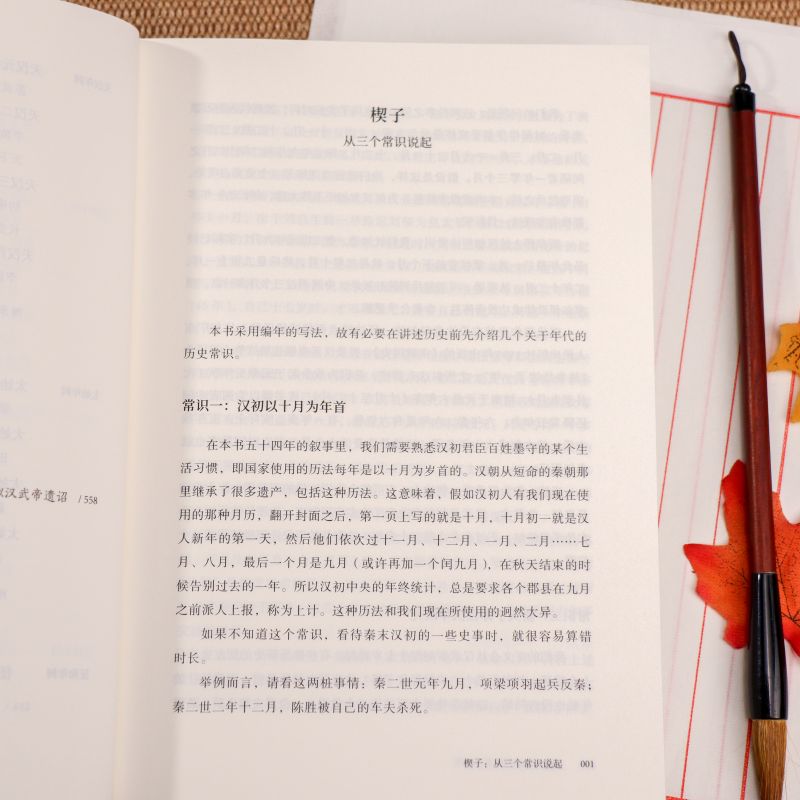 汉武帝遗诏 / 558
楔子
从三个常识说起
本书采用编年的写法，故有必要在讲述历史前先介绍几个关于年代的
历史常识。
常识一：汉初以十月为年首
在本书五十四年的叙事里，我们需要熟悉汉初君臣百姓墨守的某个生
活习惯，即国家使用的历法每年是以十月为岁首的。汉朝从短命的秦朝那
里继承了很多遗产，包括这种历法。这意味着，假如汉初人有我们现在使
用的那种月历，翻开封面之后，第一页上写的就是十月，十月初一就是汉
人新年的第一天，然后他们依次过十一月、十二月、一月、二月……七
月、八月，最后一个月是九月（或许再加一个闰九月），在秋天结束的时
候告别过去的一年。所以汉初中央的年终统计，总是要求各个郡县在九月
之前派人上报，称为上计。这种历法和我们现在所使用的迥然大异。
如果不知道这个常识，看待秦末汉初的一些史事时，就很容易算错
时长。
举例而言，请看这两桩事情：秦二世元年九月，项梁项羽起兵反秦；
秦二世二年十二月，陈胜被自己的车夫杀死。
楔子：从三个常识说起 001